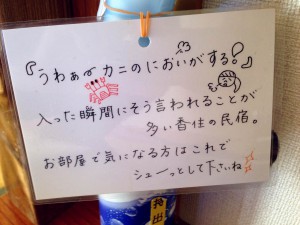 『うわぁ〜カニのにおいがする!』
入った瞬間にそう言われることが
多い香住の民宿。
お部屋で気になる方はこれで
シューっとして下さいね